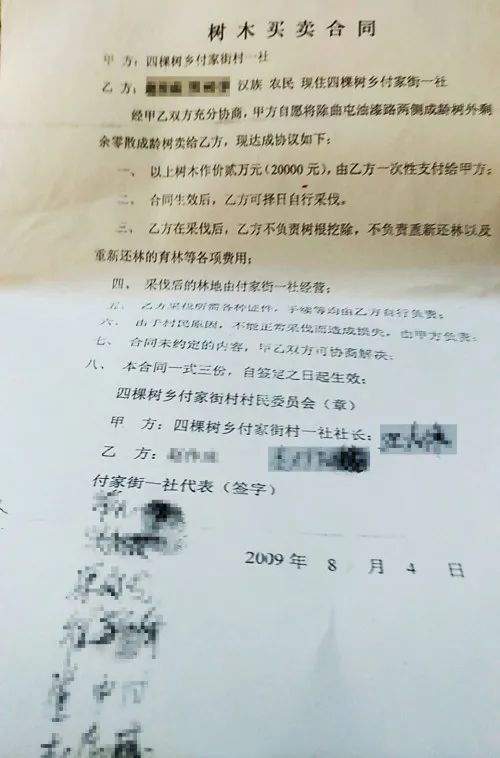 树木买卖合同
甲 方：四棵树乡付家街村一社
乙 方： 汉族 农民 现住四棵树乡付家街一社
经甲乙双方充分协商，甲方自愿将除曲屯油漆路两侧成龄树外剩
余零散成龄树卖给乙方，现达成协议如下：
一、 以上树木作价贰万元（20000 元），由乙方一次性支付给甲方；
二、 合同生效后，乙方可择日自行采伐。
三、 乙方在采伐后，乙方不负责树根挖除，不负责重新还林以及
重新还林的育林等各项费用；
四、 采伐后的林地由付家街一社经营；
五、 乙方采伐所需各种证件，手续等均由乙方自行负责；
六、 由于村民原因，不能正常采伐而造成损失，由甲方负责；
七、 合同未约定的内容，甲乙双方可协商解决；
八、 本合同一式三份，自签定之日起生效；
四棵树乡付家街村村民委员会（章）
甲 方：四棵树乡付家街村一社社长：
乙 方：
付家街一社代表（签字）
2009 年 8 月 4 日